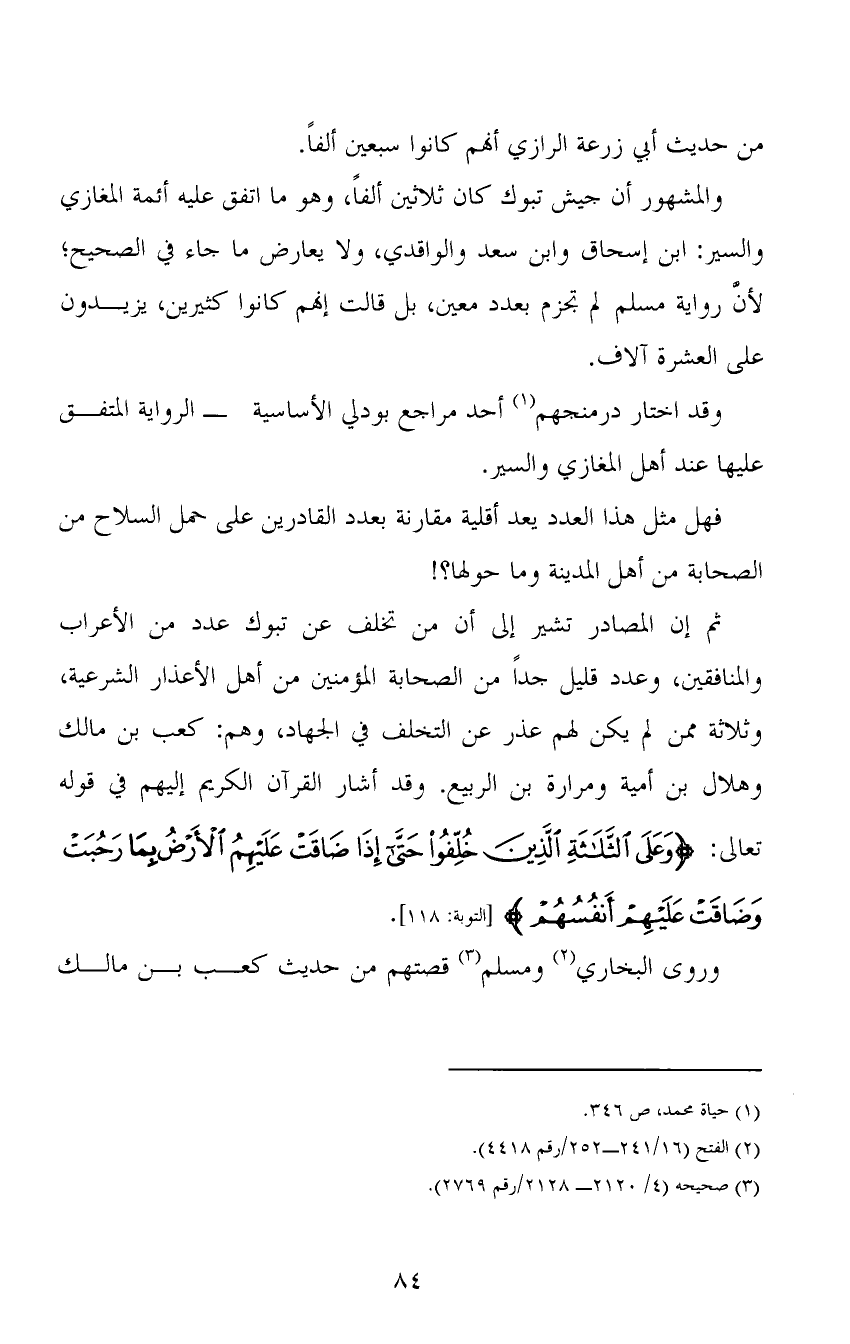 من حديث أبي زرعة الرازي أنهم كانوا سبعين ألفاً.
والمشهور أن جيش تبوك كان ثلاثين ألفاً، وهو ما اتفق عليه أئمة المغازي
والسير: ابن إسحاق وابن سعد والواقدي، ولا يعارض ما جاء في الصحيح؛
لأنَّ رواية مسلم لم تجزم بعدد معين، بل قالت إنهم كانوا كثيرين، يزيـــدون
على العشرة آلاف.
وقد اختار درمنجهم(١) أحد مراجع بودلي الأساسية ــ الرواية المتفـــق
عليها عند أهل المغازي والسير.
فهل مثل هذا العدد يعد أقلية مقارنة بعدد القادرين على حمل السلاح من
الصحابة من أهل المدينة وما حولها؟!
ثم إن المصادر تشير إلى أن من تخلف عن تبوك عدد من الأعراب
والمنافقين، وعدد قليل جداً من الصحابة المؤمنين من أهل الأعذار الشرعية،
وثلاثة ممن لم يكن لهم عذر عن التخلف في الجهاد، وهم: كعب بن مالك
وهلال بن أمية ومرارة بن الربيع. وقد أشار القرآن الكريم إليهم في قوله
تعالى: ﴿وَعَلَى ٱلثَّلَٰثَةِ ٱلَّذِينَ خُلِّفُواْ حَتَّىٰٓ إِذَا ضَاقَتْ عَلَيْهِمُ ٱلْأَرْضُ بِمَا رَحُبَتْ
وَضَاقَتْ عَلَيْهِمْ أَنفُسُهُمْ﴾ [التوبة: ١١٨].
وروى البخاري(٢) ومسلم(٣) قصتهم من حديث كعـــب بـــن مالـــك
(١) حياة محمد، ص ٣٤٦.
(٢) الفتح (٢٤١/١٦ــ٢٥٢/رقم ٤٤١٨).
(٣) صحيحه (٤/ ٢١٢٠ــ ٢١٢٨/رقم ٢٧٦٩).
٨٤